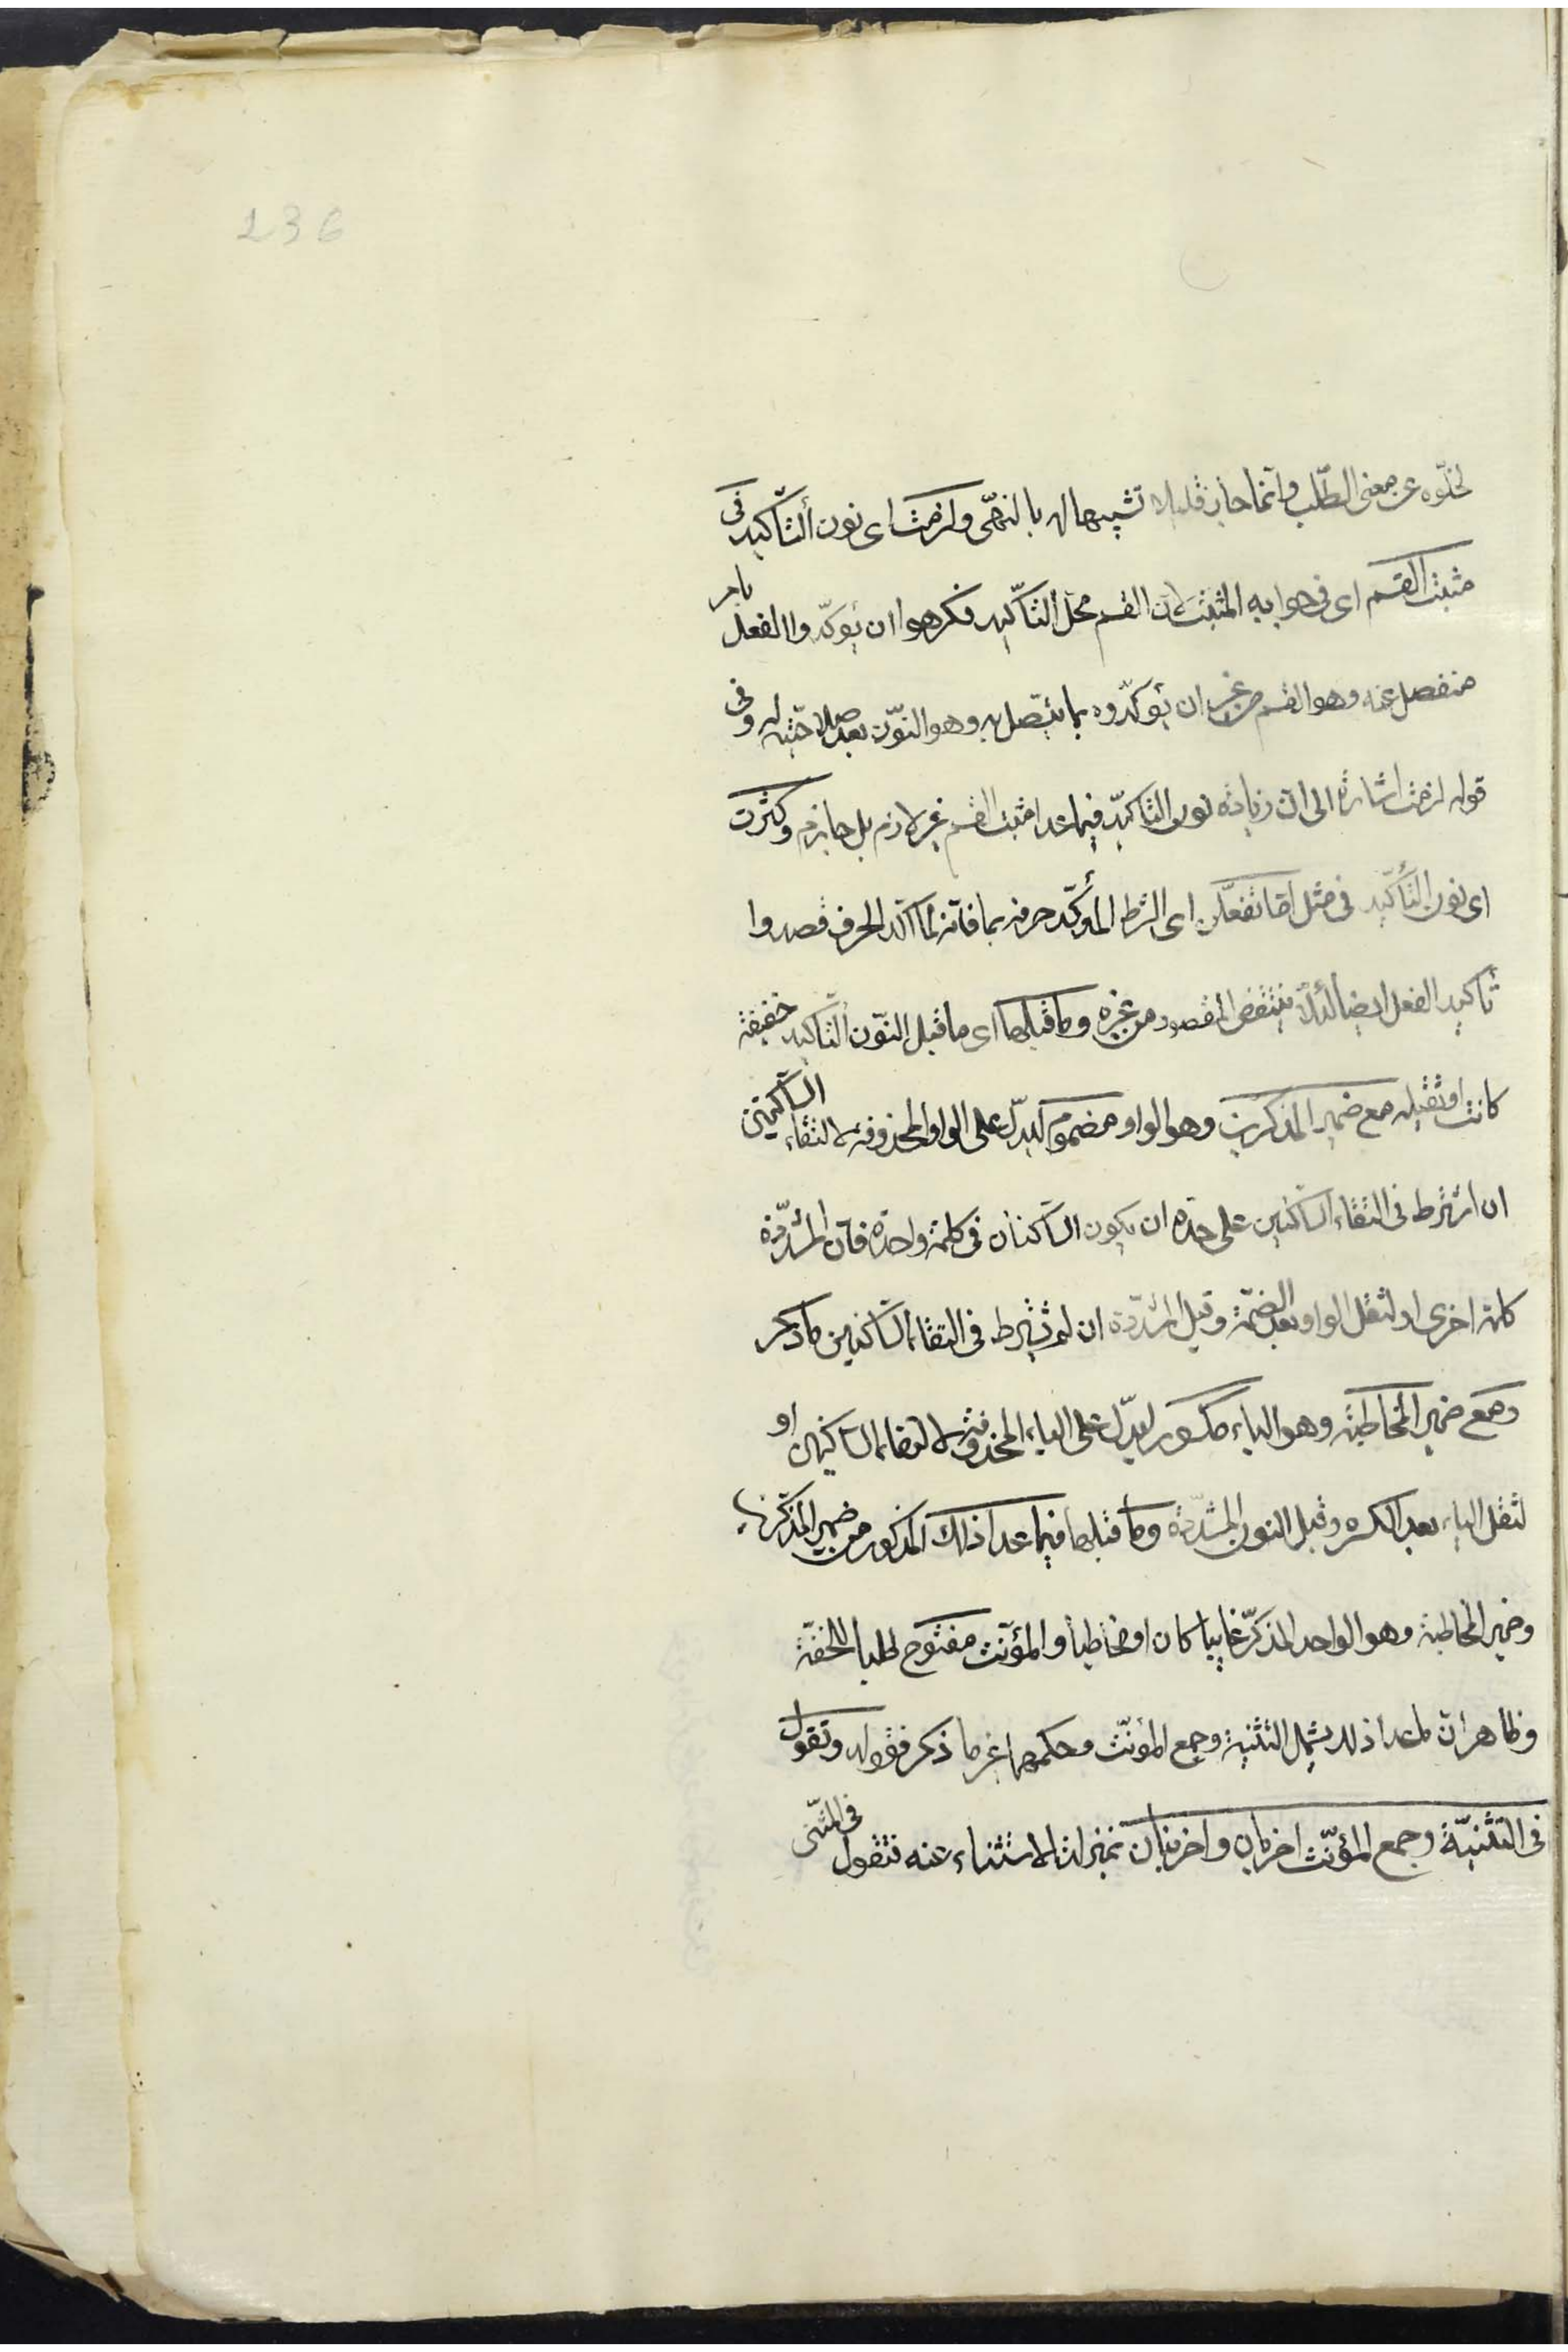 236
لخلّوه عن معنى الطّلب وانّما جاز قليلا تشبيها له بالنهّى ولزمت اى نون التّاكيد فى
مثبت القسم اى فى جوابه المثبت لان القسم محلّ التّاكيد فكرهوا ان يؤكّدوا الفعل بامر
منفصل عنه وهو القسم من غير ان يؤكّدوه بما يتّصل به وهو النّون بعد صلاحيّته له وفى
قوله لزمت اشارة الى ان زيادة نون التّاكيد فيما عدا مثبت القسم غير لازم بل جايزم وكثرت
اى نون التّأكيد فى مثل امّا تفعلّن اى الشرط المؤكّد حرفه بما فانّه لمّا اكّد الحرف قصدوا
تأكيد الفعل ايضا لئلّا ينتقض المقصود من غيره وما قبلها اى ما قبل النّون التّأكيد خفيفة
كانت او ثقيله مع ضمير المذكرين وهو الواو مضموم ليدلّ على الواو المحذوفه لالتقاء السّاكنين
ان اشترط فى التقاء السّاكنين على حده ان يكون السّاكنان فى كلمة واحدة فانّ المشدّدة
كلمة اخرى او لثقل الواو بعد الضّمّة وقبل المشدّدة ان لم يشترط فى التقاء السّاكنين ما ذكر
ومع ضمير المخاطبة وهو الياء مكسور ليدلّ على الياء المحذوفة لالتقاء السّاكنين او
لثقل الياء بعد الكسره وقبل النون المشدّدة وما قبلها فيما عدا ذلك المذكور من ضمير المذكرين
وضمير المخاطبة وهو الواحد المذكّر غايبا كان او مخاطبا والمؤنّث مفتوح طلبا للخفّة
وظاهر ان ما عدا ذلك يشمل التثنية وجمع المؤنّث وحكمهما غير ما ذكر فقوله وتقول
فى التثنيّة وجمع المؤنّث اضربان واضربنان بمنزلة الاستثناء عنه فتقول فى المثنّى